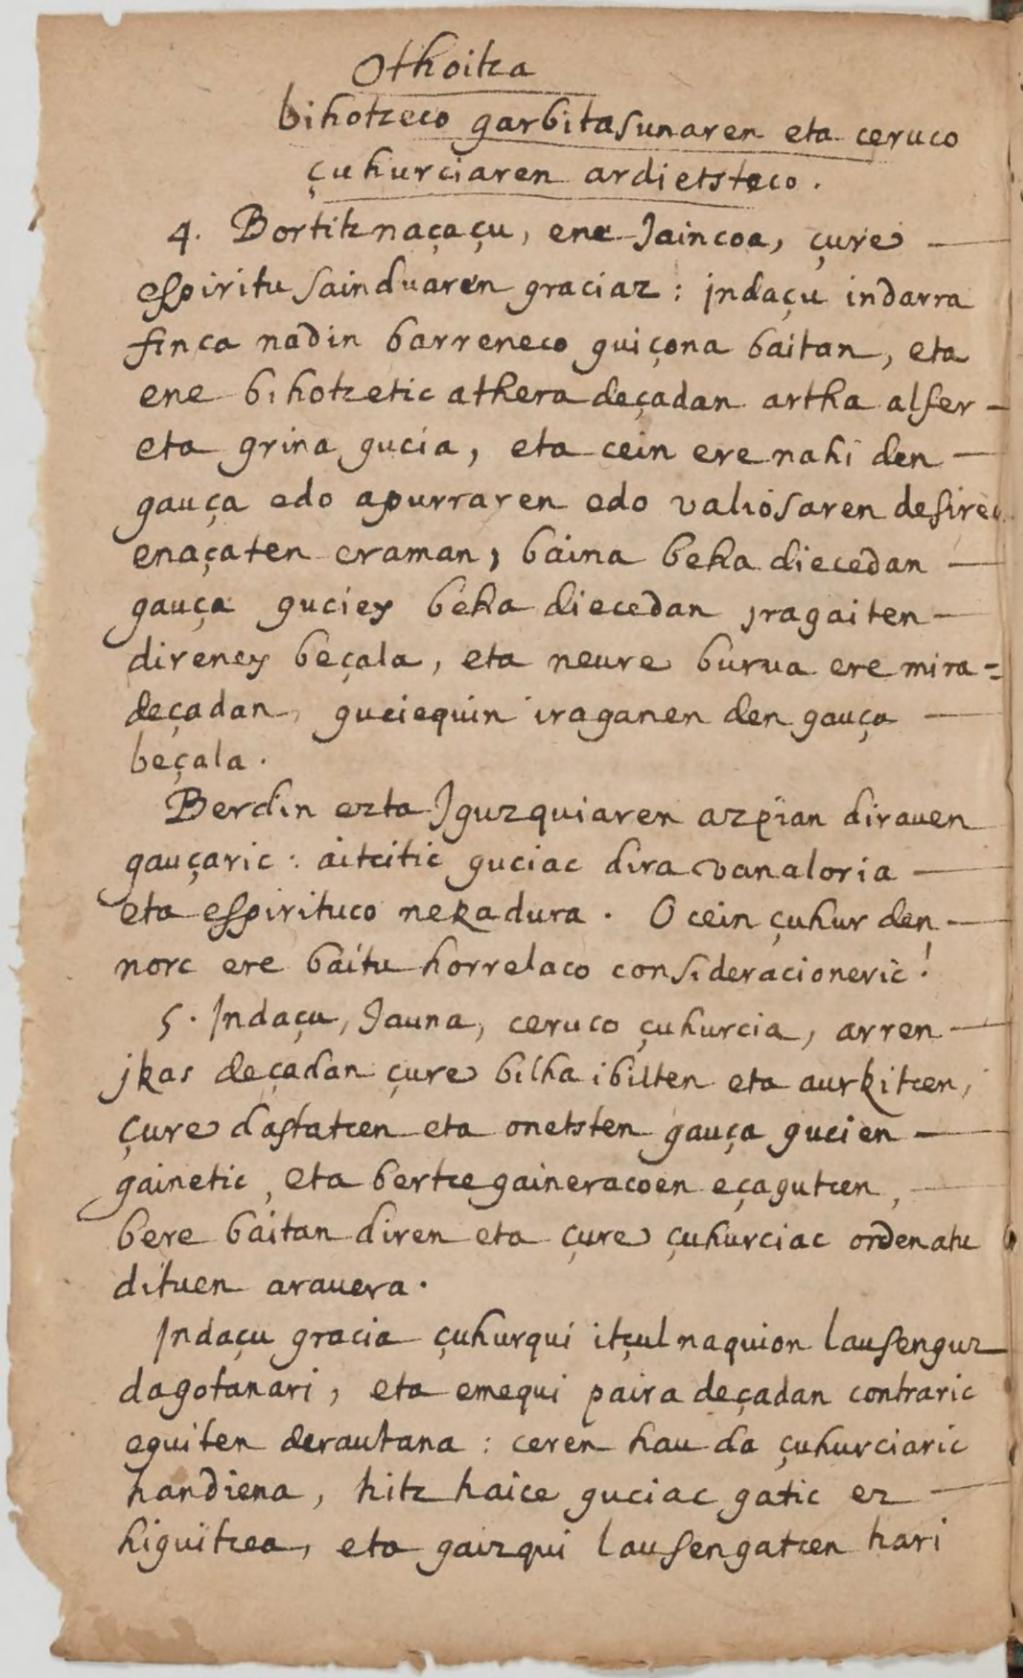 Othoitza
bihotzeco garbitasunaren eta ceruco
çuhurciaren ardietsteco.
4. Bortitz naçaçu, ene Jaincoa, çure
espiritu sainduaren graciaz: jndaçu indarra
finca nadin barreneco guiçona baitan, eta
ene bihotzetic athera deçadan artha alfer
eta grina gucia, eta cein ere nahi den
gauça edo apurraren edo valiosaren desirec
enaçaten eraman, baina beha diecedan
gauça guciey beha diecedan jragaiten
direney beçala, eta neure burua ere mira=
deçadan, guciequin iraganen den gauça
beçala.
Berdin ezta Jguzquiaren azpian dirauen
gauçaric: aitcitic guciac dira vanaloria
eta espirituco nekadura. O cein çuhur den
norc ere baitu horrelaco consideracioneric!
5. Jndaçu, Jauna, ceruco çuhurcia, arren
jkas deçadan çure bilha ibilten eta aurkitcen,
çure dastatcen eta onetsten gauça gucien
gainetic, eta bertce gaineracoen eçagutcen,
bere baitan diren eta çure çuhurciac ordenatu
dituen arauera.
Jndaçu gracia çuhurqui itçul naquion lausenguz
dagotanari, eta emequi paira deçadan contraric
eguiten derautana: ceren hau da çuhurciaric
handiena, hitz haice guciac gatic ez
higuitcea, eta gaizqui lausengatcen hari